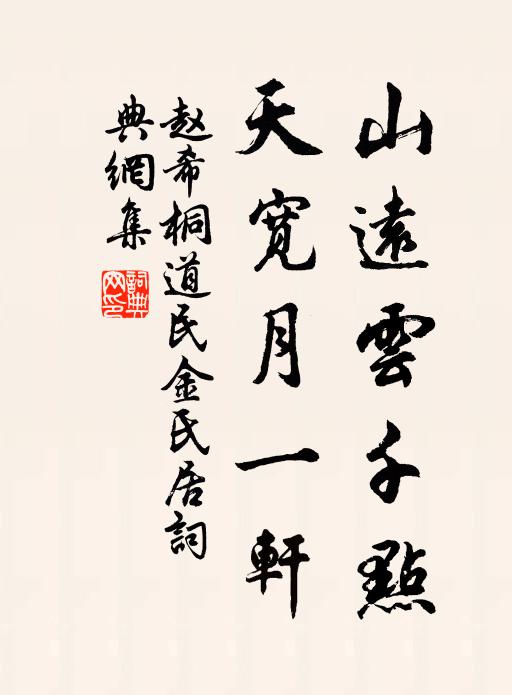 山遠雲千點
天寬月一軒
赵希桐道民金氏居詞
典網集
詞典網印